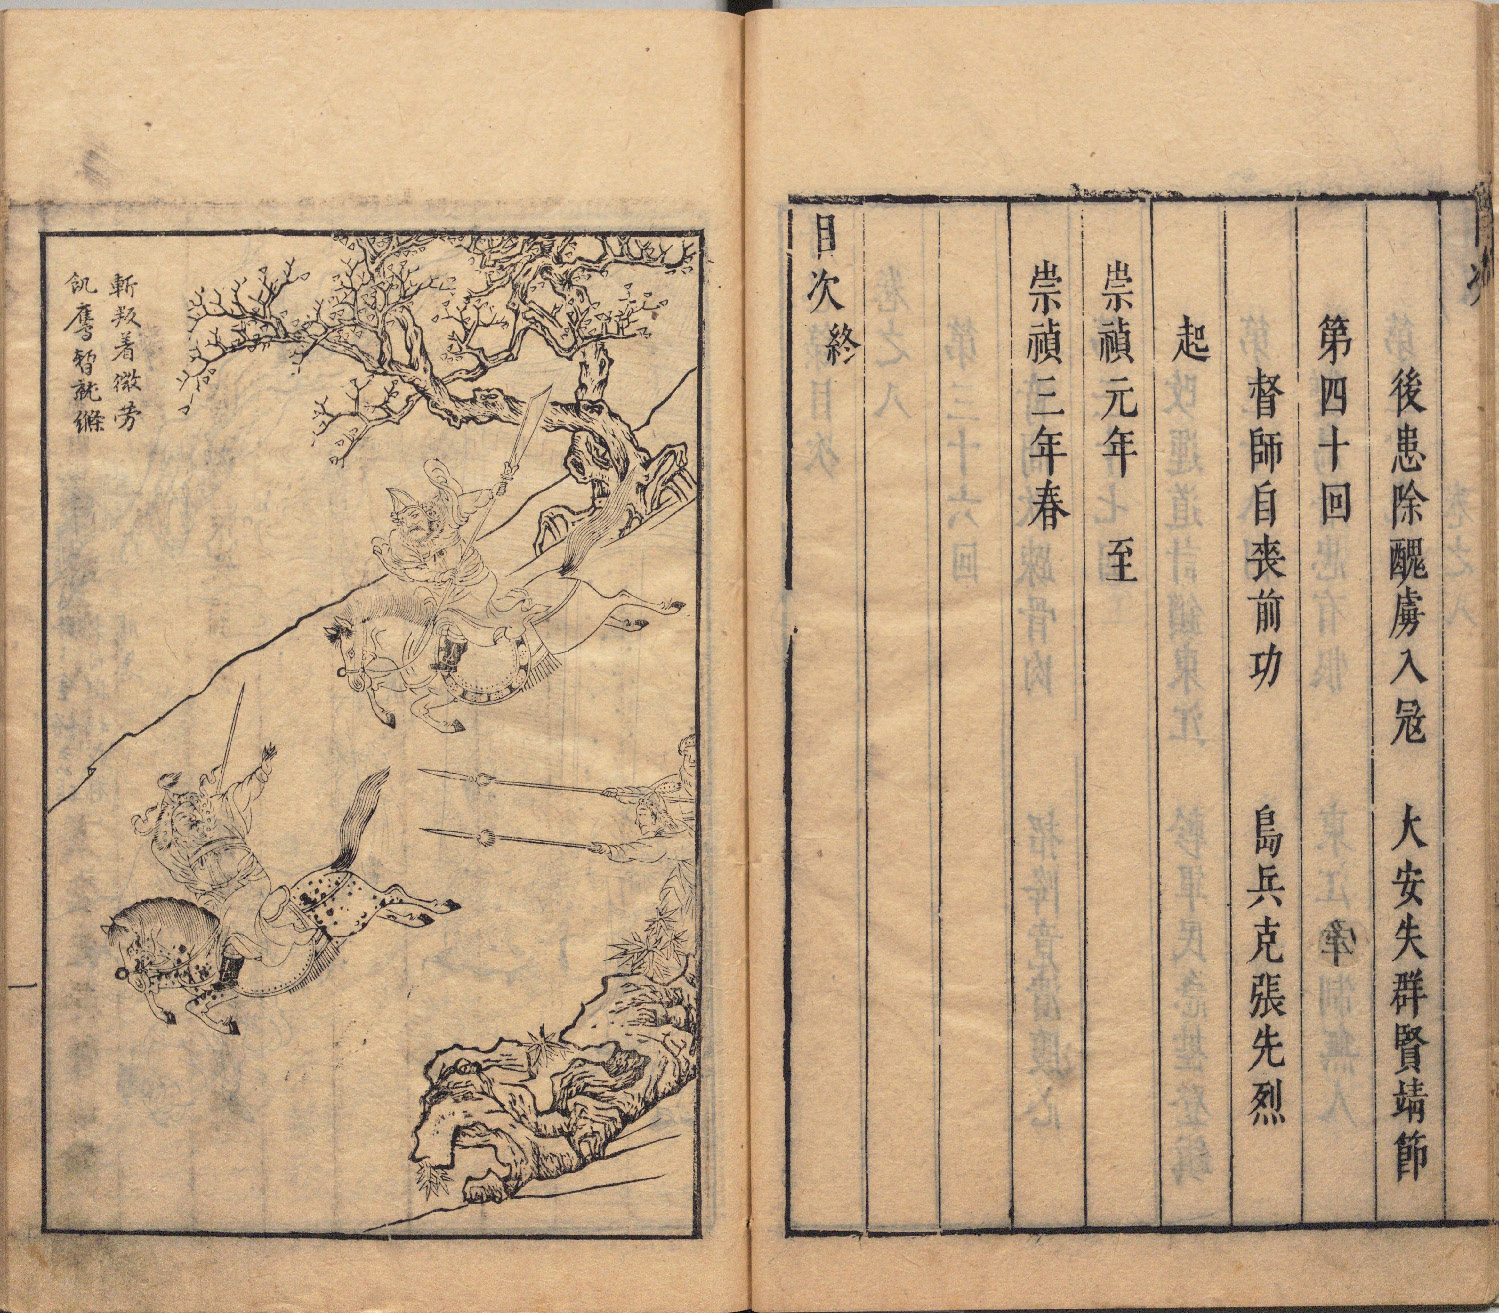 後患除醜虜入冦　大安失群賢靖節
第四十回
督師自丧前功　島兵克張先烈
起
崇禎元年　至
崇禎三年春
目次終
斬叛着微劳
飢鷹暫就絛
一